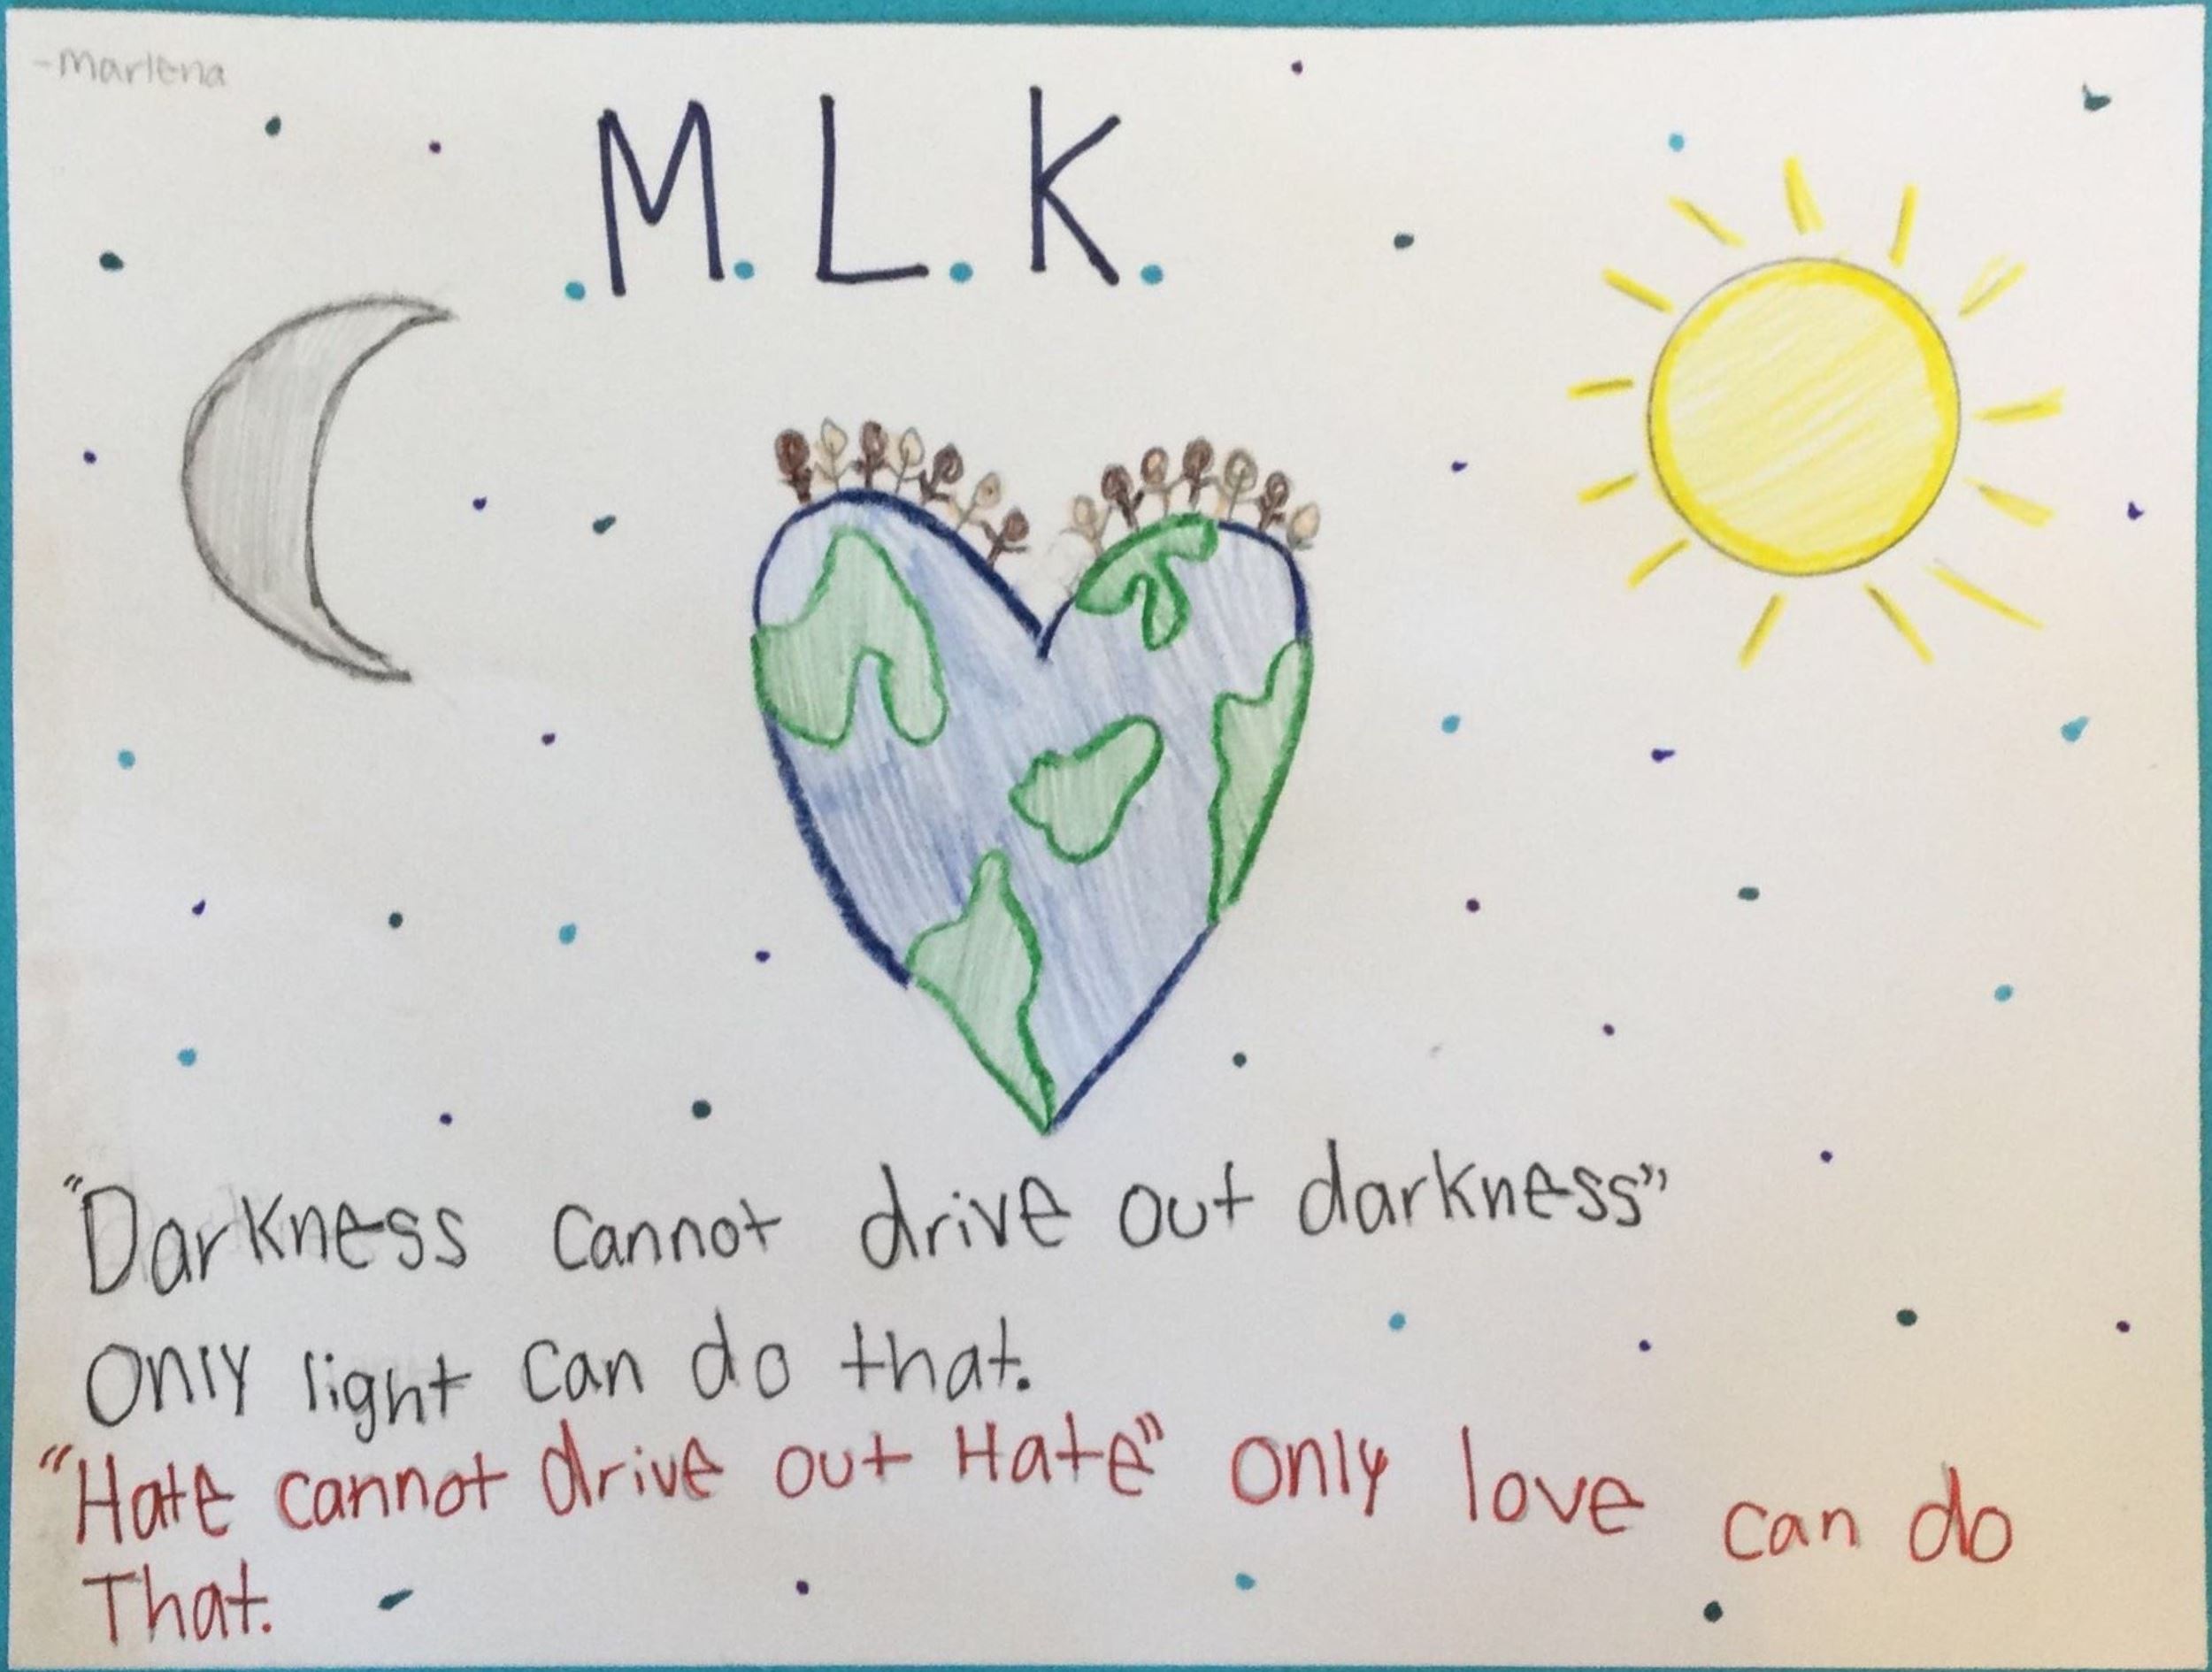 -Marlena
.M.L.K.
"Darkness cannot drive out darkness"
only light can do that.
"Hate cannot drive out Hate" only love can do
That.